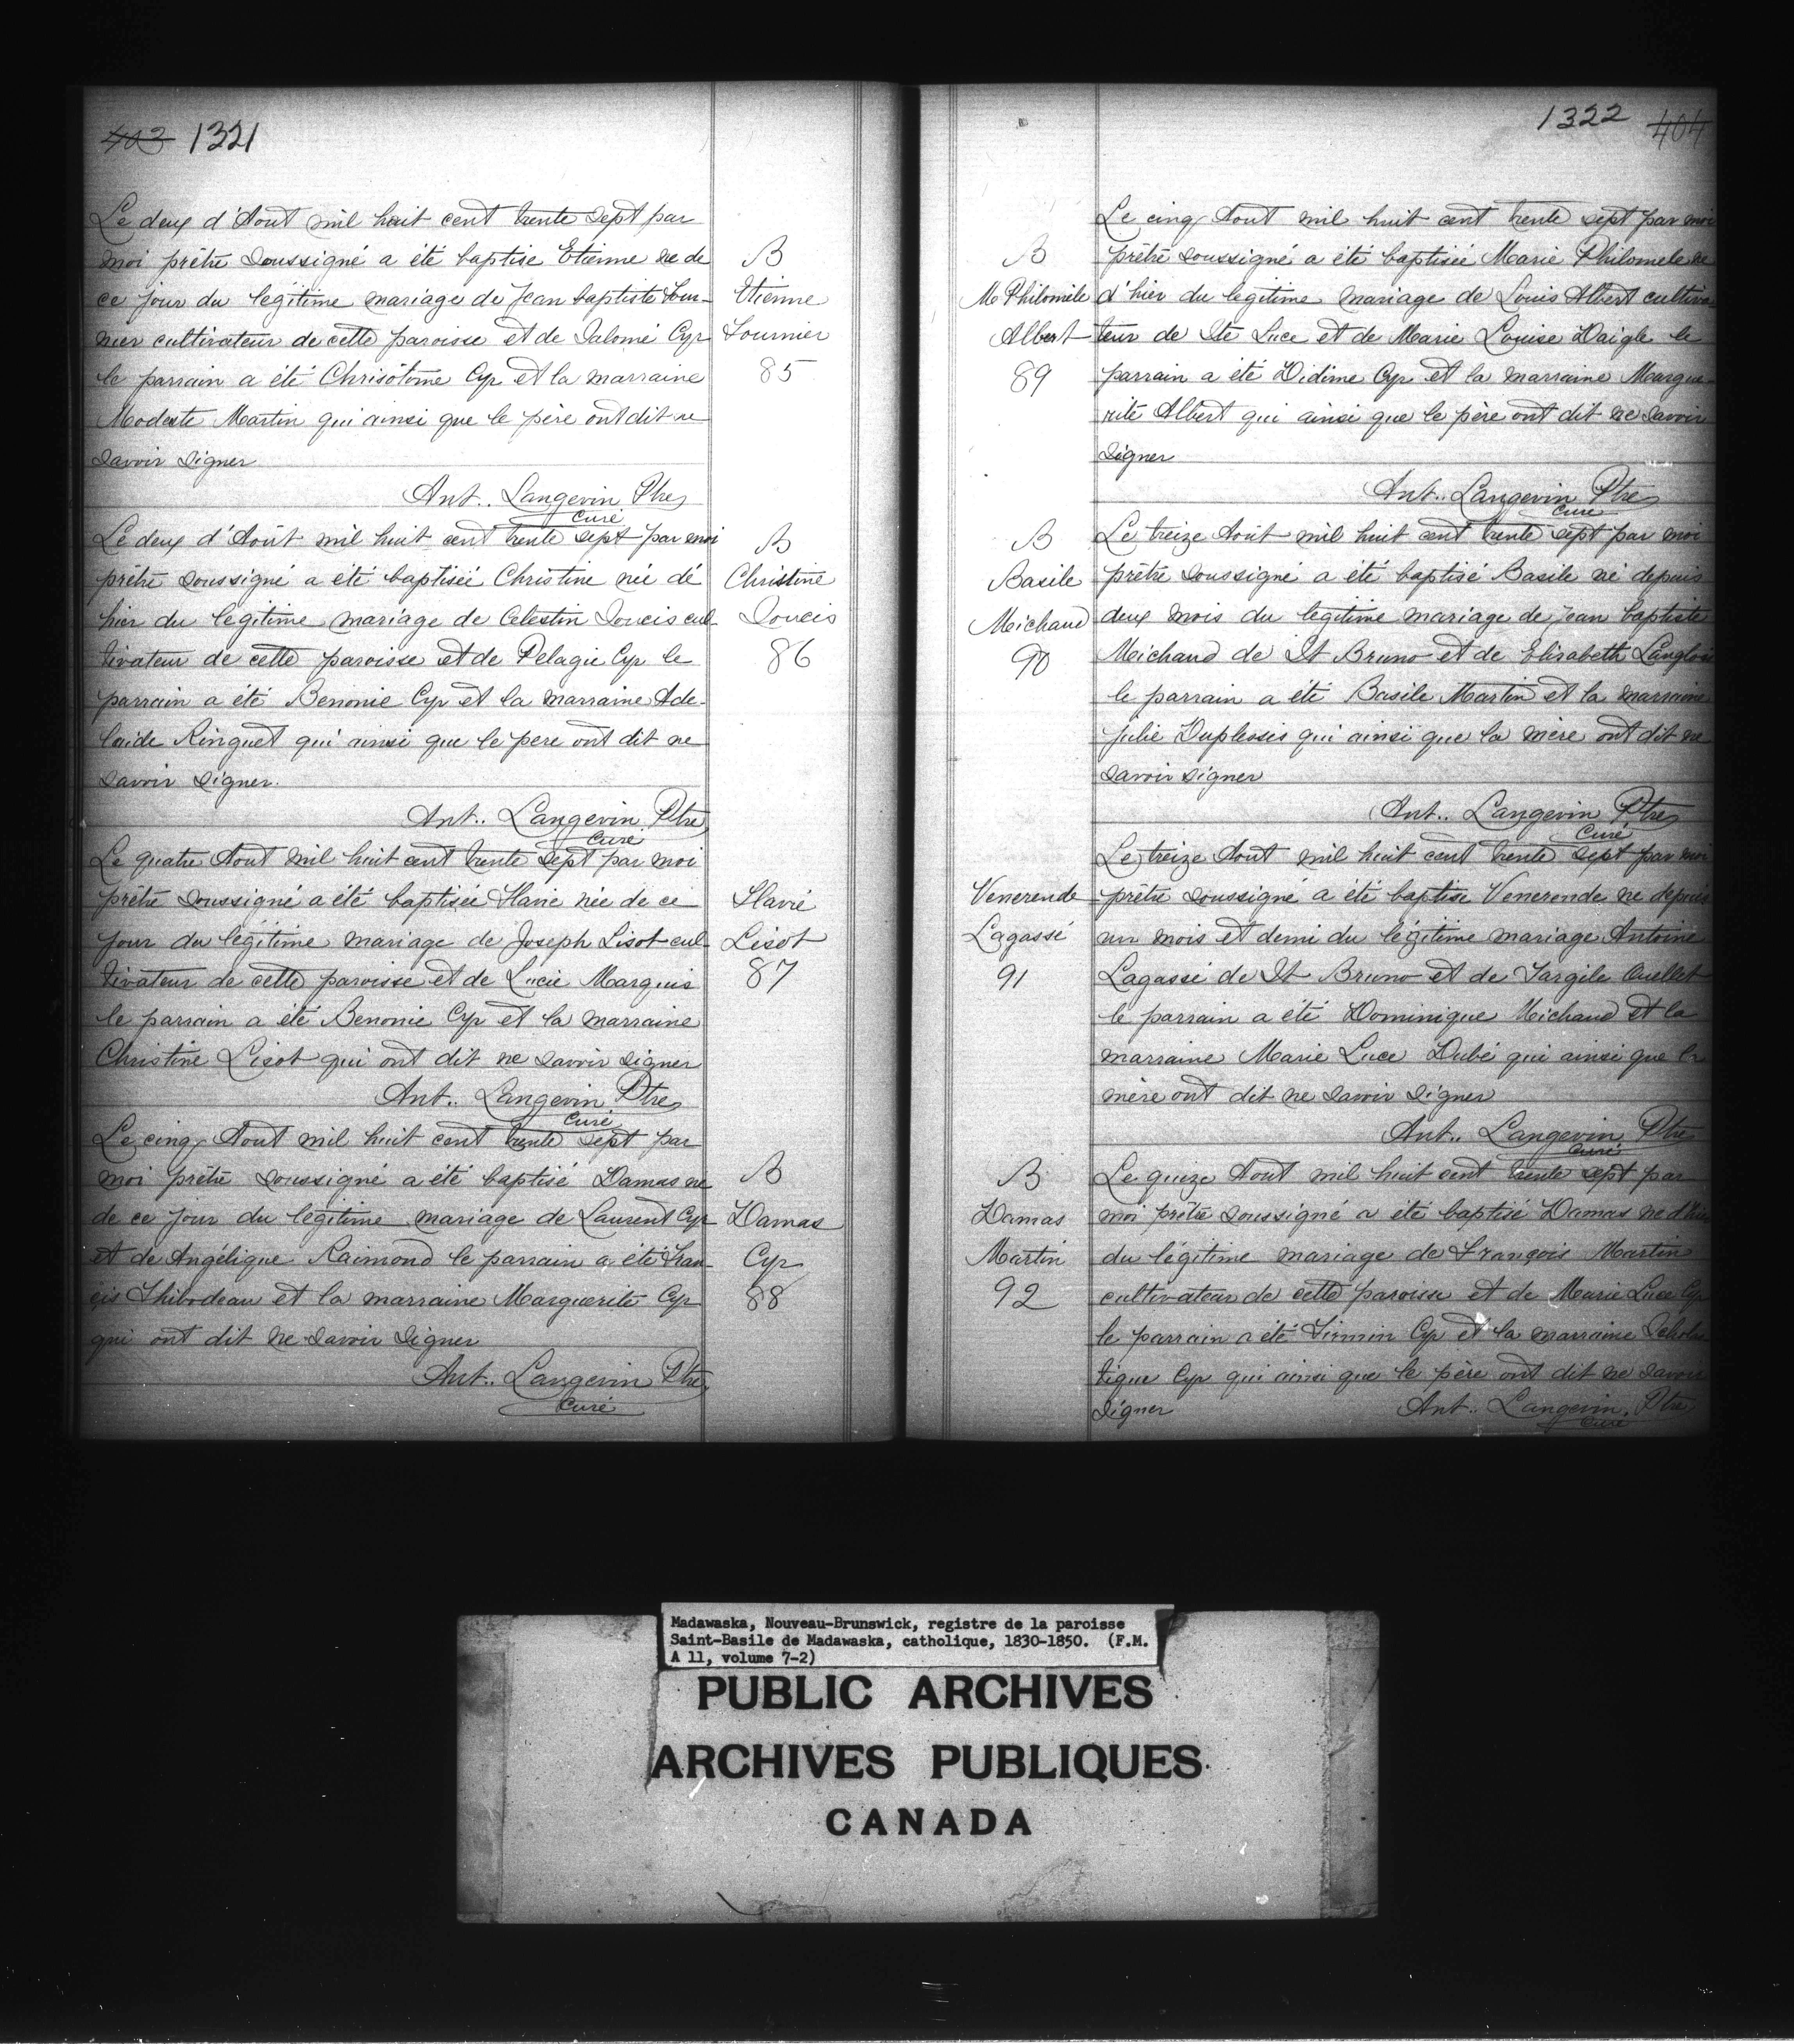 403 1321
Le deux d'Aout mil huit cent trente sept par
moi prêtre soussigné a été baptise Etienne ne de
ce jour du legitime mariage de Jean baptiste Four-
nier cultivateur de cette paroisse et de Salomé Cyr
le parrain a été Chrisôtome Cyr et la marraine
Modeste Martin qui ainsi que le père ont dit ne
savoir signer
Ant.. Langevin Ptre
Curé
B
Etienne
Fournier
85
Le deux d'Août mil huit cent trente sept par moi
prêtre soussigné a été baptisée Christine née dé
hier du legitime mariage de Celestin Soucis cul-
tivateur de cette paroisse et de Pelagie Cyr le
parrain a été Benonie Cyr et la marraine Ade-
laide Ringuet qui ainsi que le pere ont dit ne
savoir signer.
Ant.. Langevin Ptre
Curé
B
Christine
Soucis
86
Le quatre Aout mil huit cent trente sept par moi
prêtre soussigné a été baptisée Flavie née de ce
jour du légitime mariage de Joseph Lisot cul-
tivateur de cette paroisse et de Lucie Marquis
le parrain a été Benonie Cyr et la marraine
Christine Lisot qui ont dit ne savoir signer
Ant.. Langevin Ptre
Curé
Flavie
Lisot
87
Le cinq Aout mil huit cent trente sept par
moi prêtre soussigné a été baptisé Damas ne
de ce jour du légitime mariage de Laurent Cyr
et de Angélique Raimond le parrain a été Fran-
çis Thibodeau et la marraine Marguerite Cyr
qui ont dit ne savoir signer
Ant.. Langevin Ptre
Curé
B
Damas
Cyr
88
1322 404
Le cinq Aout mil huit cent trente sept par moi
prêtre soussigné a été baptisée Marie Philomele ne
d'hier du legitime mariage de Louis Albert cultiva
teur de Ste Luce et de Marie Louise Daigle le
parrain a été Didime Cyr et la marraine Margue-
rite Albert qui ainsi que le père ont dit ne savoir
signer
Ant.. Langevin Ptre
Curé
B
M Philomèle
Albert
89
Le treize Août mil huit cent trente sept par moi
prêtre soussigné a été baptisé Basile né depuis
deux mois du legitime mariage de Jean baptiste
Michaud de St Bruno et de Elisabeth Langlois
le parrain a été Basile Martin et la marraine
Julie Duplessis qui ainsi que la mère ont dit ne
savoir signer
Ant.. Langevin Ptre
Curé
B
Basile
Michaud
90
Le treize Aout mil huit cent trente sept par moi
prêtre soussigné a été baptise Venerende ne depuis
un mois et demi du légitime mariage Antoine
Lagassé de St Bruno et de Targile Ouellet
le parrain a été Dominique Michaud et la
marraine Marie Luce Dubé qui ainsi que la
mère ont dit ne savoir signer
Ant.. Langevin Ptre
Curé
Venerende
Lagassé
91
Le quize Aout mil huit cent trente sept par
moi prêtre soussigné a été baptisé Damas ne d'hier
du légitime mariage de François Martin
cultivateur de cette paroisse et de Marie Luce Cyr
le parrain a été Firmin Cyr et la marraine Schola
tique Cyr qui ainsi que le père ont dit ne savoir
signer Ant.. Langevin Ptre
Curé
B
Damas
Martin
92
Madawaska, Nouveau-Brunswick, registre de la paroisse
Saint-Basile de Madawaska, catholique, 1830-1850. (F.M.
A 11, volume 7-2)
PUBLIC ARCHIVES
ARCHIVES PUBLIQUES
CANADA